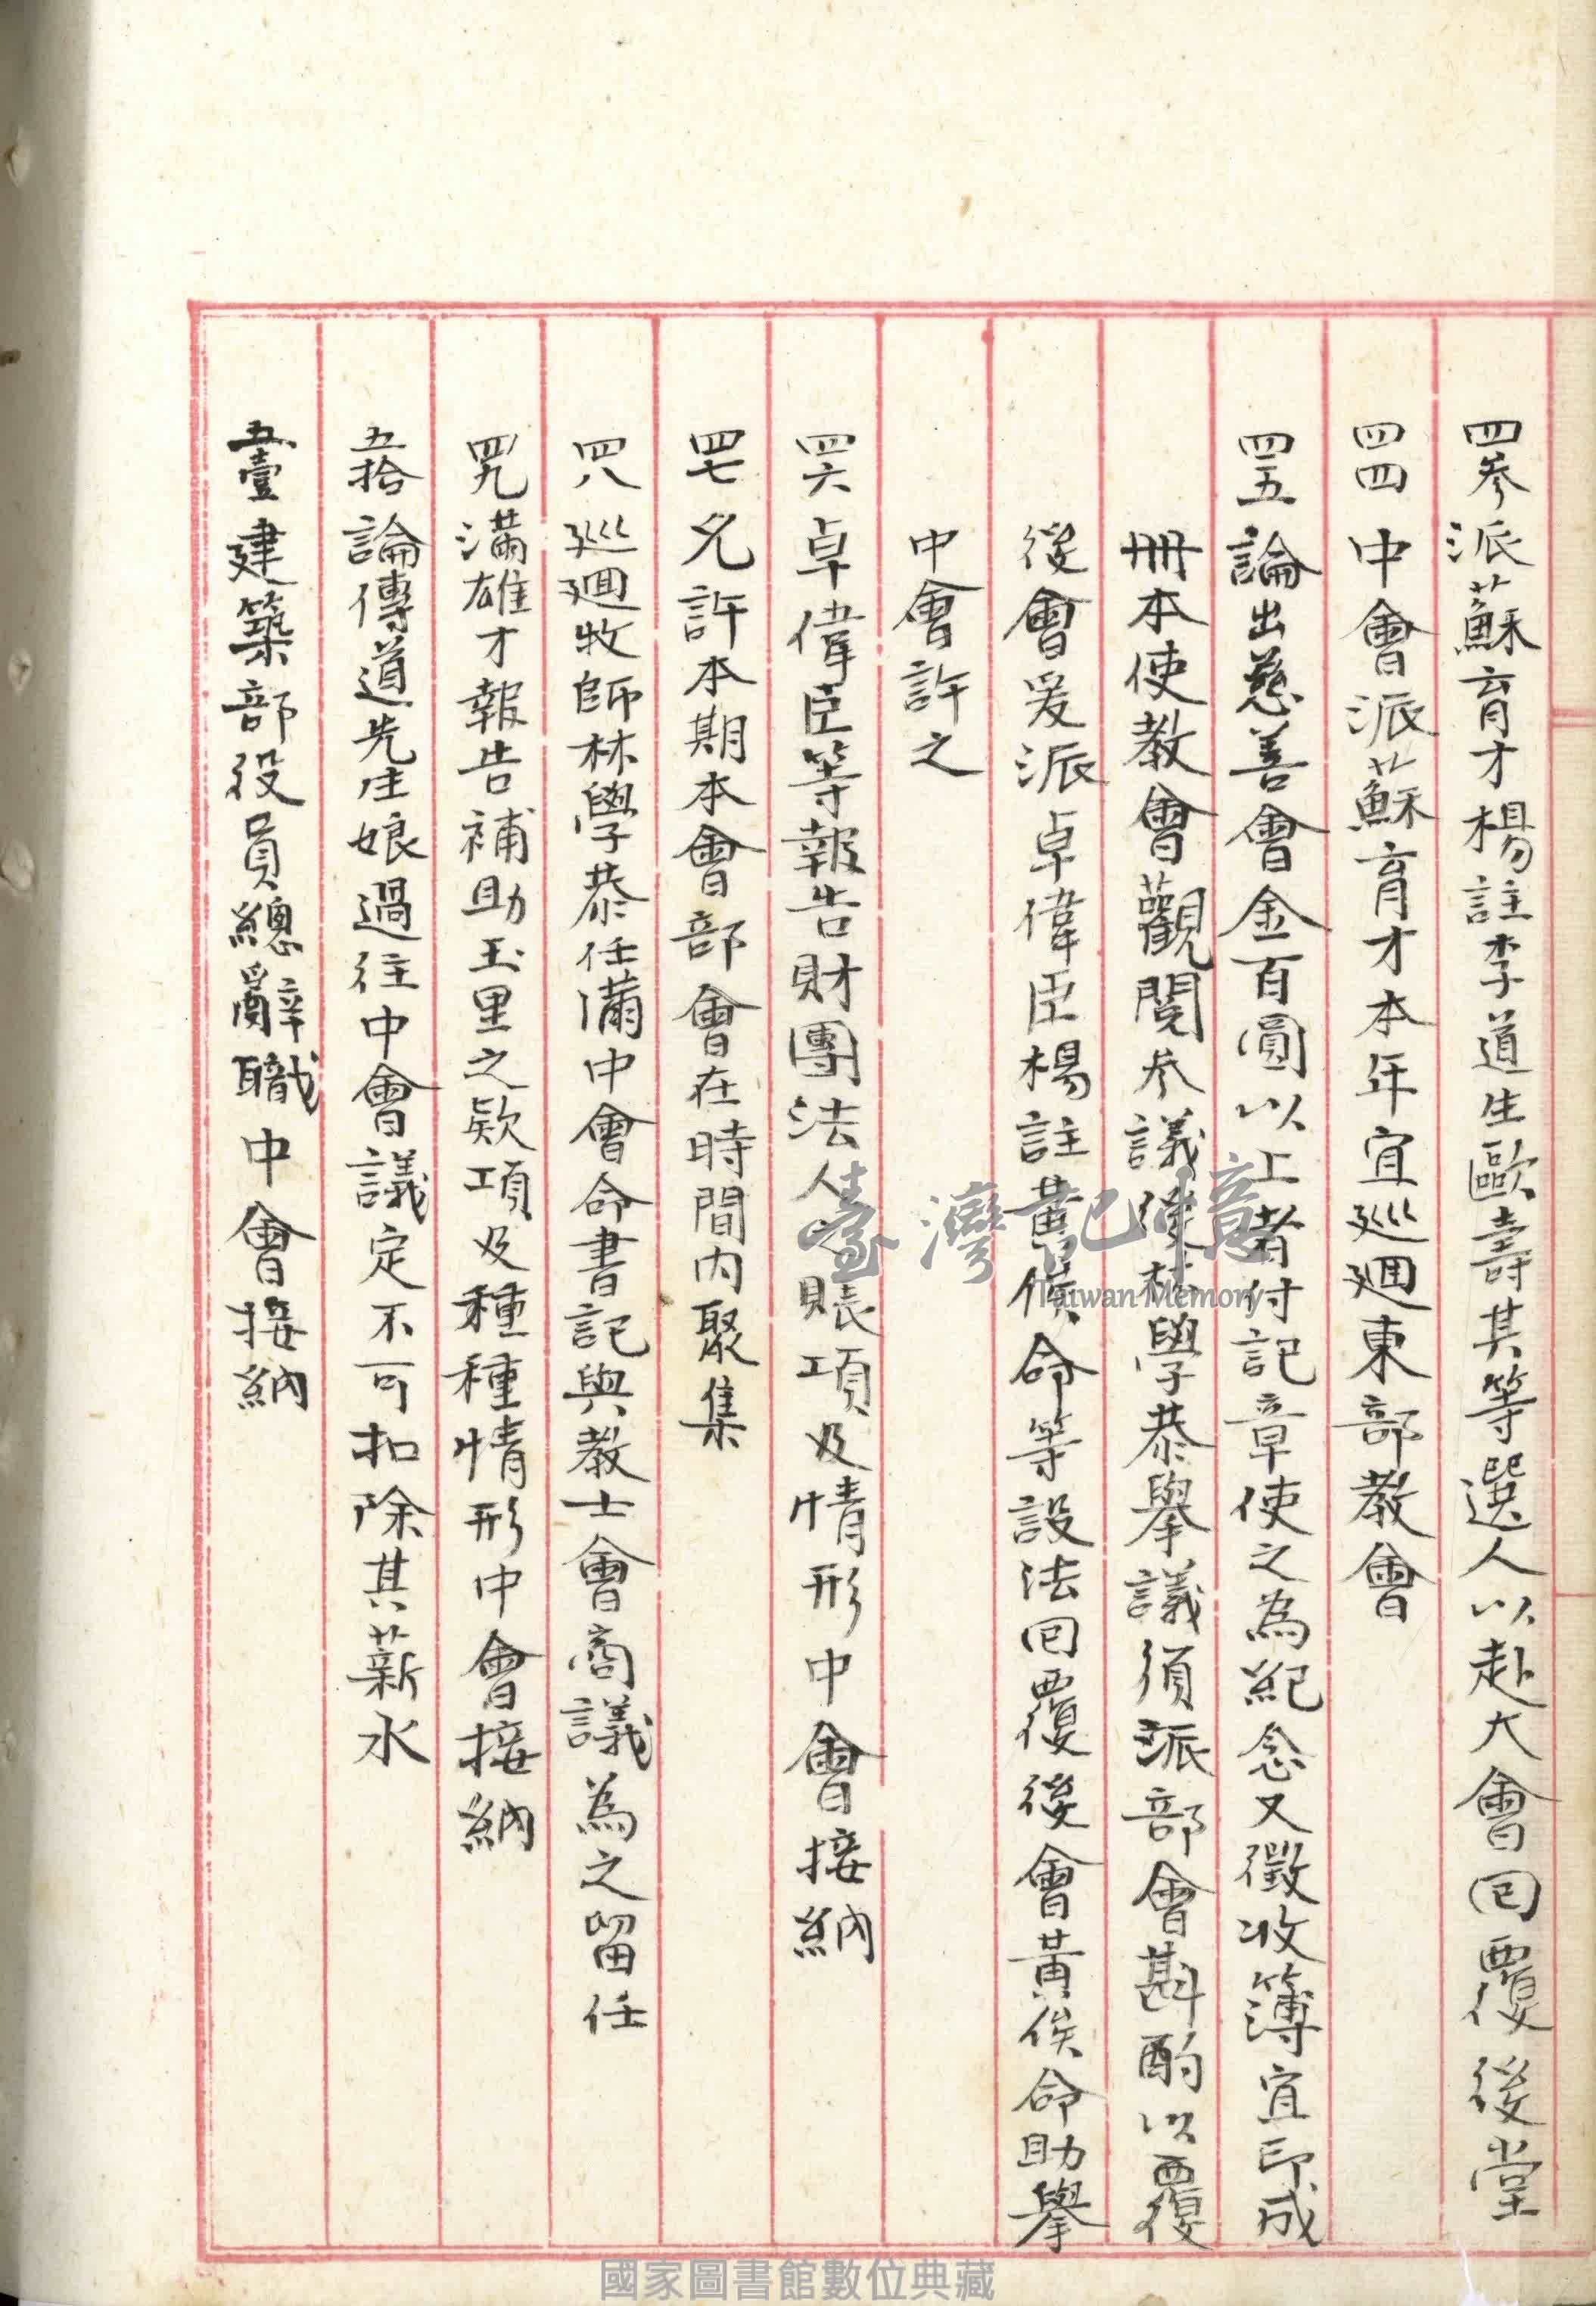 四参派蘇育才楊註李道生歐壽其等選人以赴大會回覆後堂
四四中會派蘇育才本年宜巡迴東部教會
四五論出慈善會金百圓以上者付記章使之為紀念又徵收簿宜印成
冊本使教會觀閱参議後林學恭舉議須派部會斟酌以覆
後會爰派卓偉臣楊註黃俟命等設法回覆後會黃俟命助舉
中會許之
四六卓偉臣等報告財團法人之賬項及情形中會接納
四七允許本期本會部會在時間內聚集
四八巡迴牧師林學恭任滿中會命書記與教士會商議為之留任
四九滿雄才報告補助玉里之欵項及種種情形中會接納
五拾論傳道先生娘過往中會議定不可扣除其薪水
五壹建築部役員總辭職中會接納
臺灣記憶
Taiwan Memory
國家圖書館數位典藏